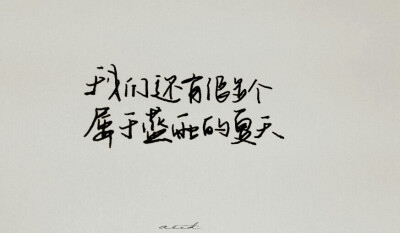 我们还有很多个
属于蓝雨的夏天